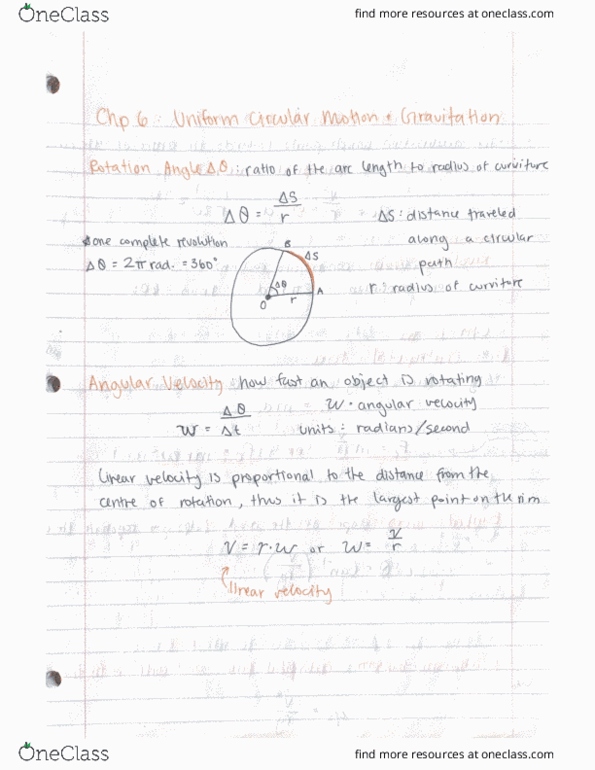 OneClass find more resources at oneclass.com
Chp 6: Uniform Circular Motion + Gravitation
Rotation Angle Δθ: ratio of the arc length to radius of curviture
Δθ = ΔS / r
ΔS: distance traveled
along a circular
path
r: radius of curviture
one complete revolution
Δθ = 2π rad. = 360°
B
ΔS
Δθ
A
O
r
Angular Velocity how fast an object is rotating
w = Δθ / Δt
w · angular velocity
units: radians/second
linear velocity is proportional to the distance from the
centre of rotation, thus it is the largest point on the rim
v = r·w or w = v / r
linear velocity
OneClass find more resources at oneclass.com